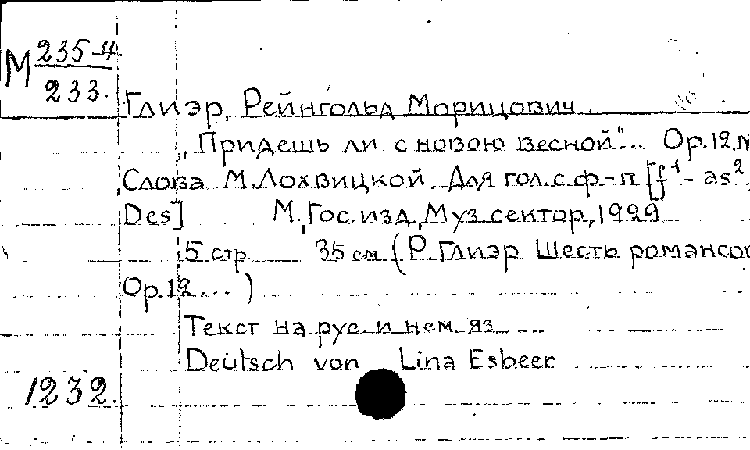 М 235-4
233.
Глиэр, Рейнгольд Морицович
„Придешь ли с новою весной"... Op.12.
Слова М.Лохвицкой. Для гол. с ф-п [f¹- as²
Des] М, Гос. изд, Муз. сектор, 1929
5 стр 35 см (Р. Глиэр Шесть романсов
Op.12 ... )
Текст на рус. и нем. яз ...
Deutsch von Lina Esbeer
1232.